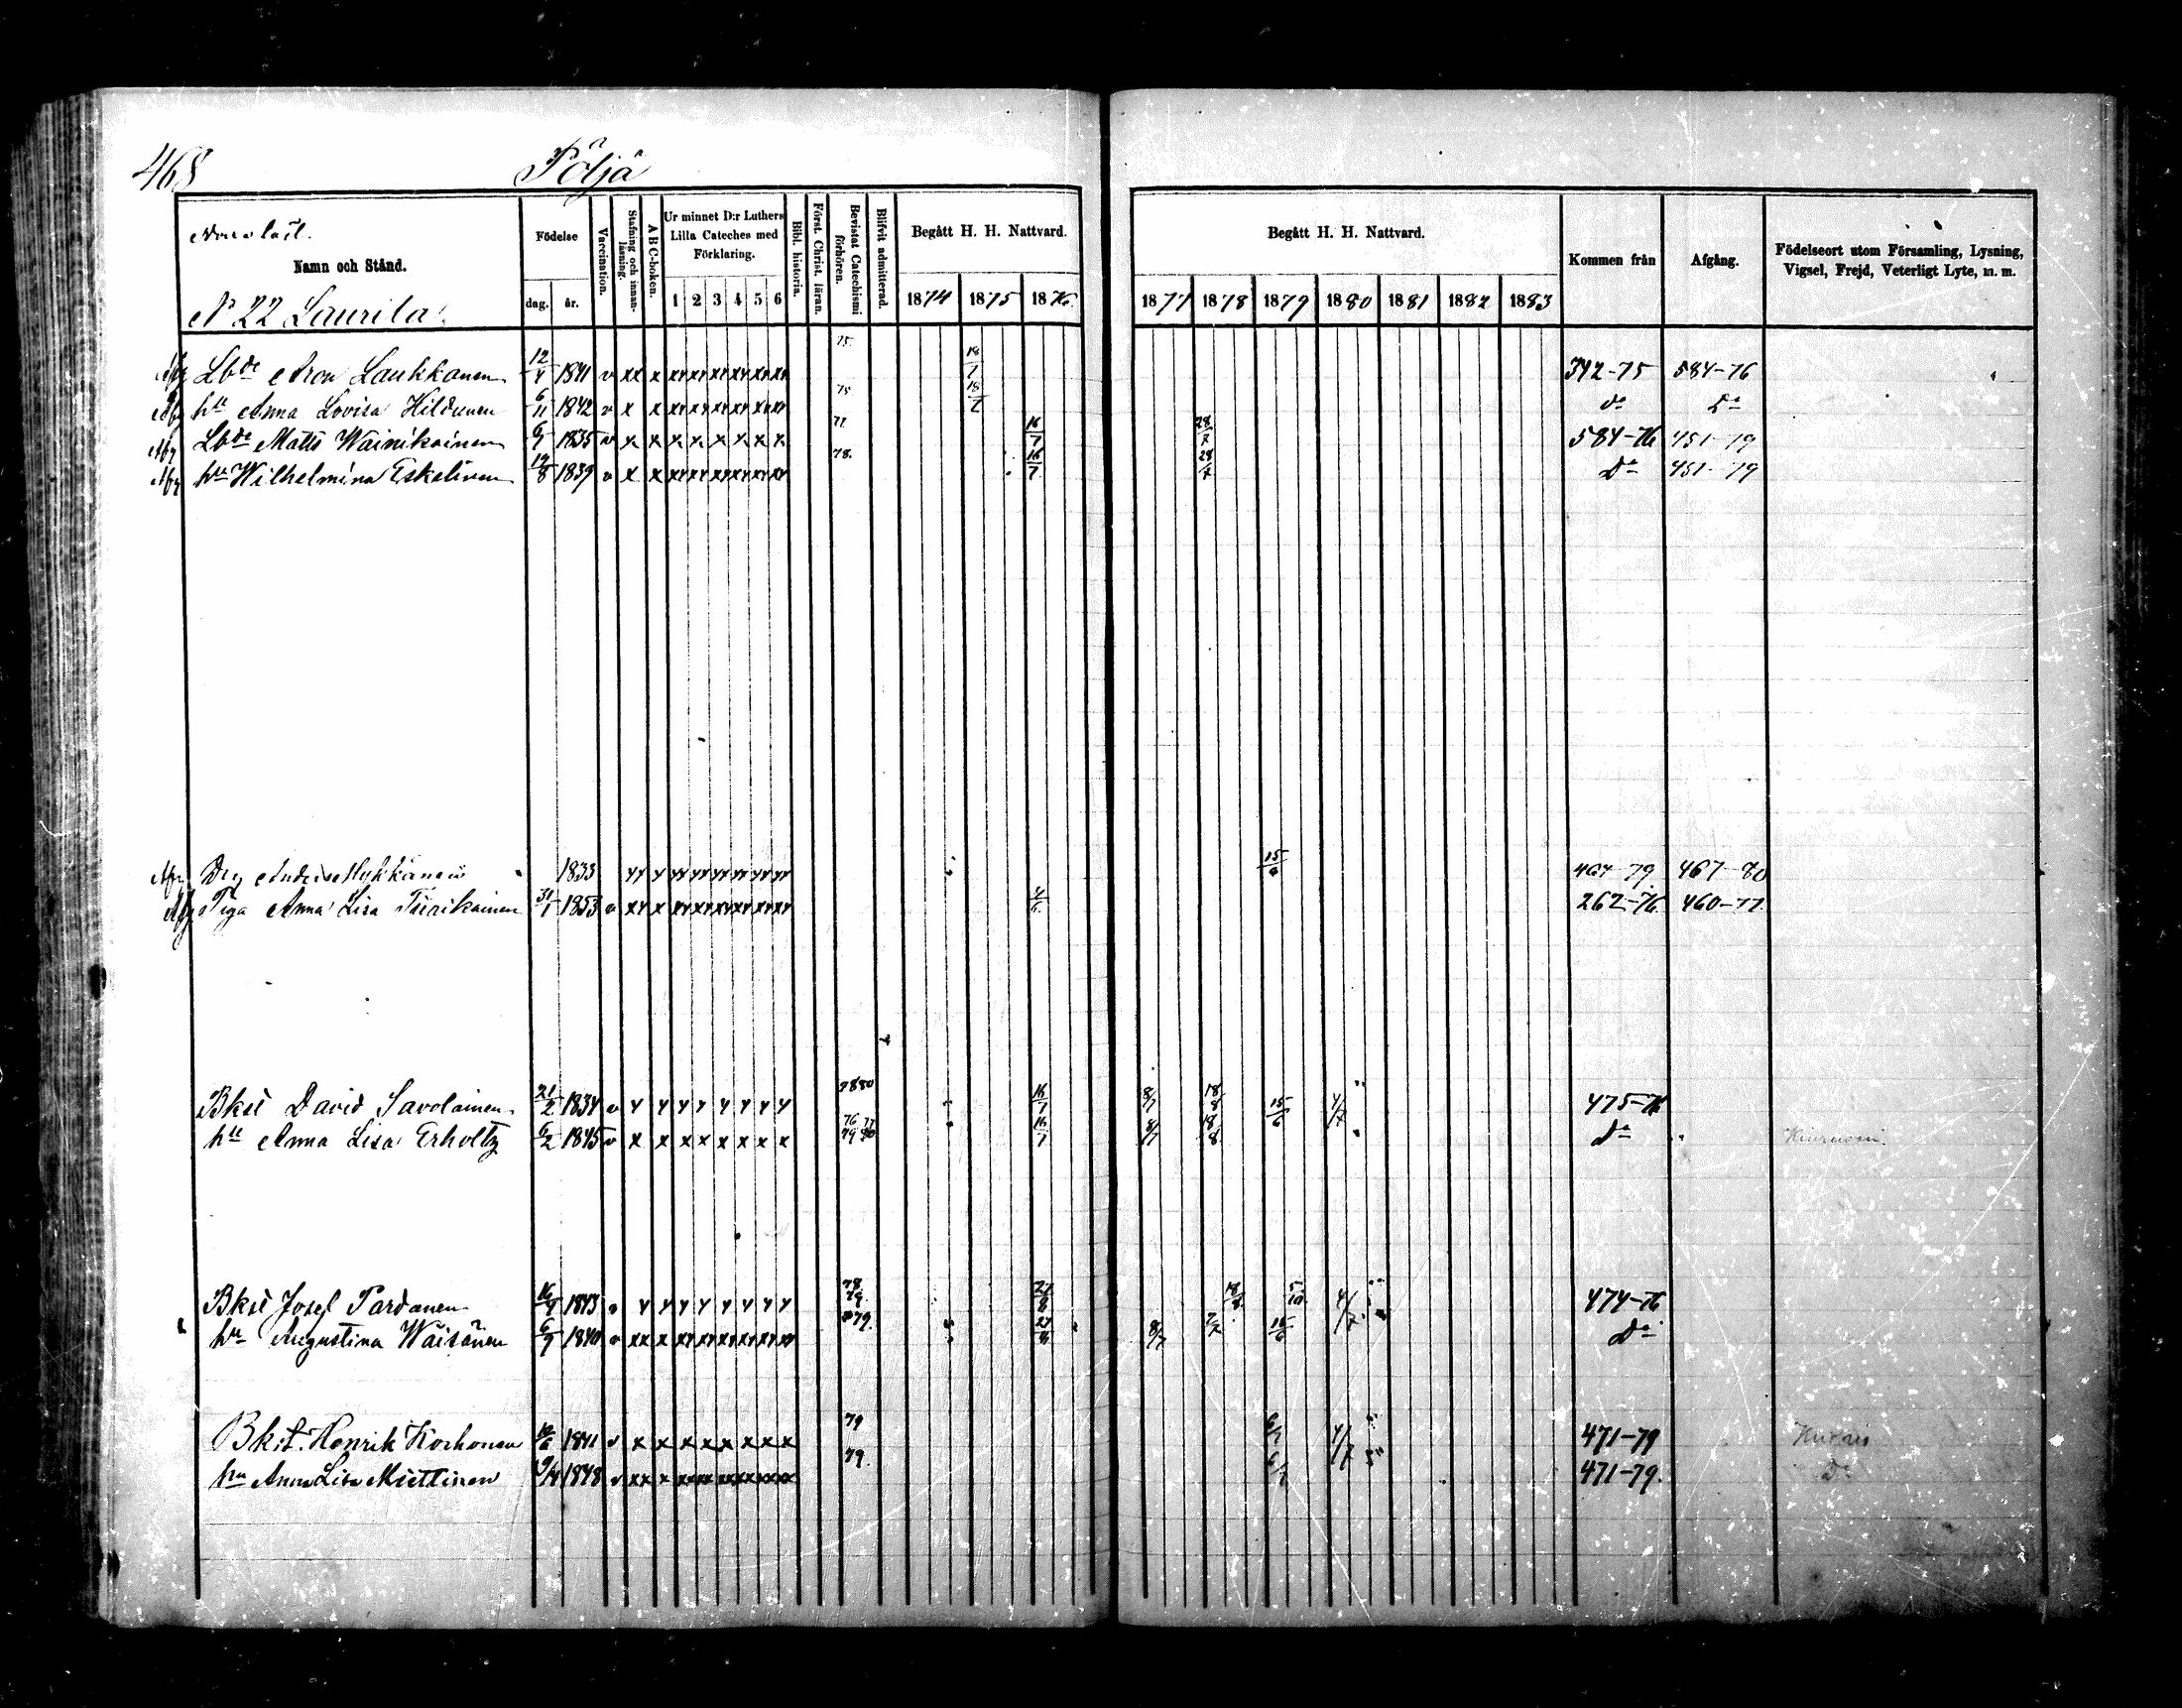 468 Pöljä
Namn och Stånd.
N 22 Laurila
Födelse
dag. år.
Vaccination.
Stafning och innan-läsning.
A B C-boken.
Ur minnet D:r Luthers Lilla Cateches med Förklaring.
1 2 3 4 5 6
Bibl. historia.
Först. Christ. läran.
Bevistat Catechismi förhören.
Blifvit admitterad.
Begått H. H. Nattvard.
1874 1875 1876
Begått H. H. Nattvard.
1877 1878 1879 1880 1881 1882 1883
Kommen från
Afgång.
Födelseort utom Församling, Lysning, Vigsel, Frejd, Veterligt Lyte, m. m.
Afg Lbde Aron Laukkanen 12/4 1841 v xx x 75 18/7 342-75 584-76
Afg hu Anna Lovisa Hildunen 6/11 1842 v x x 75 18/7 do Do
Afg Lbde Matts Wainikainen 6/9 1835 v x x x x x x x x 77 16/7 28/7 584-76 451-79
Afg hu Wilhelmina Eskelinen 19/8 1839 v x x 78. 16/7 28/7 Do 451-79
Afg Drg Anders Hykkänen 1833 15/6 467-79 467-80
Afg Piga Anna Lisa Tiirikainen 31/1 1853 v 4/6 262-76 460-77
Bksu David Savolainen 21/2 1834 v 78 80 16/7 8/7 18/8 15/6 4/7 475-76
hu Anna Lisa Erholtz 6/2 1845 v x x x x x x x x 76 77 79 80 16/7 8/7 18/8 Do
Bksu Josef Pardanen 16/4 1843 v 78 79 27/8 18/8 5/10 4/7 474-76
hu Augustina Wäisänen 6/9 1840 v xx x 79. 27/8 8/7 7/7 15/6 Do
Bkst. Henrik Korhonen 10/6 1841 v x x x x x x x x 79 6/7 4/7 471-79
hu Anna Lisa Miettinen 9/4 1848 v xx x 79. 6/7 471-79. Do